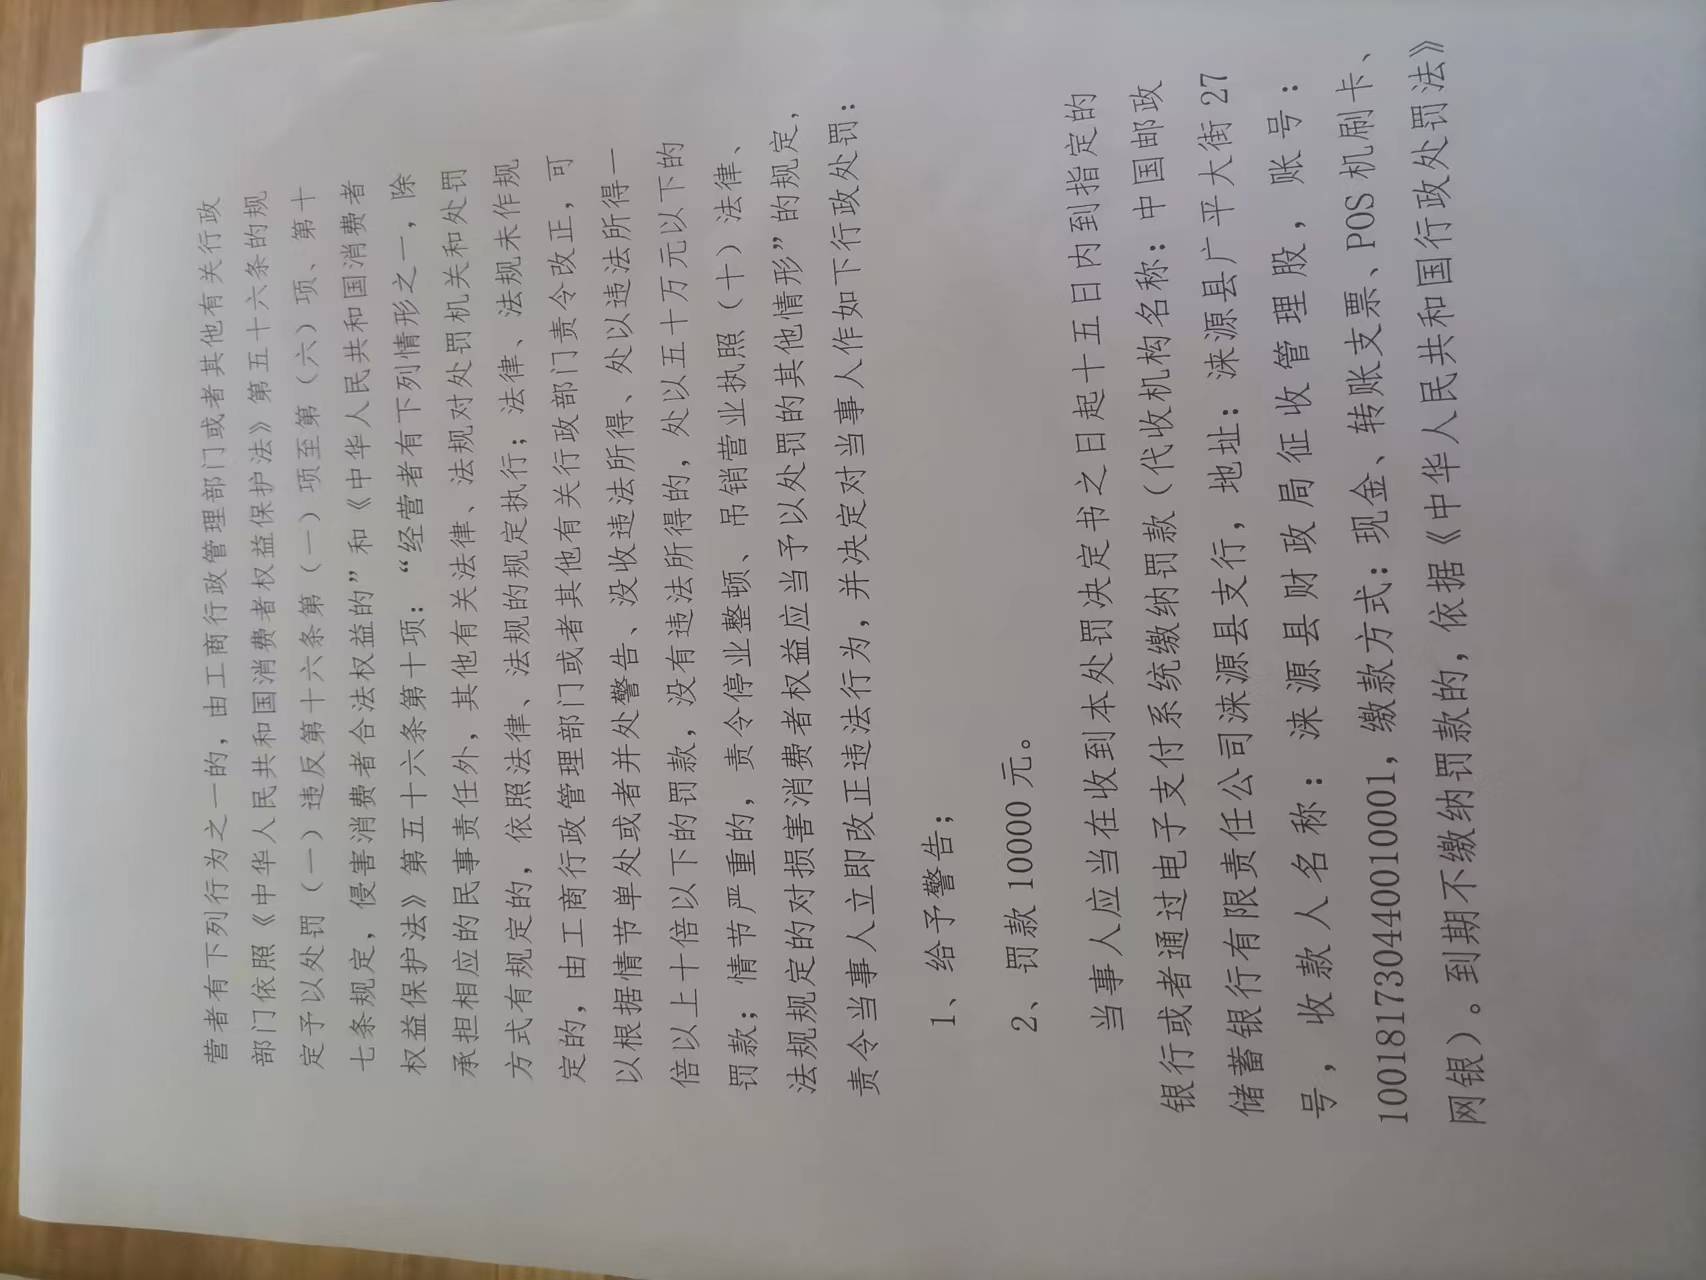 营者有下列行为之一的，由工商行政管理部门或者其他有关行政
部门依照《中华人民共和国消费者权益保护法》第五十六条的规
定予以处罚（一）违反第十六条第（一）项至第（六）项、第十
七条规定，侵害消费者合法权益的”和《中华人民共和国消费者
权益保护法》第五十六条第十项：“经营者有下列情形之一，除
承担相应的民事责任外，其他有关法律、法规对处罚机关和处罚
方式有规定的，依照法律、法规的规定执行；法律、法规未作规
定的，由工商行政管理部门或者其他有关行政部门责令改正，可
以根据情节单处或者并处警告、没收违法所得、处以违法所得一
倍以上十倍以下的罚款，没有违法所得的，处以五十万元以下的
罚款；情节严重的，责令停业整顿、吊销营业执照（十）法律、
法规规定的对损害消费者权益应当予以处罚的其他情形”的规定，
责令当事人立即改正违法行为，并决定对当事人作如下行政处罚：
1、给予警告；
2、罚款 10000 元。
当事人应当在收到本处罚决定书之日起十五日内到指定的
银行或者通过电子支付系统缴纳罚款（代收机构名称：中国邮政
储蓄银行有限责任公司涞源县支行，地址：涞源县广平大街 27
号，收款人名称：涞源县财政局征收管理股，账号：
100181730440010001，缴款方式：现金、转账支票、POS 机刷卡、
网银）。到期不缴纳罚款的，依据《中华人民共和国行政处罚法》